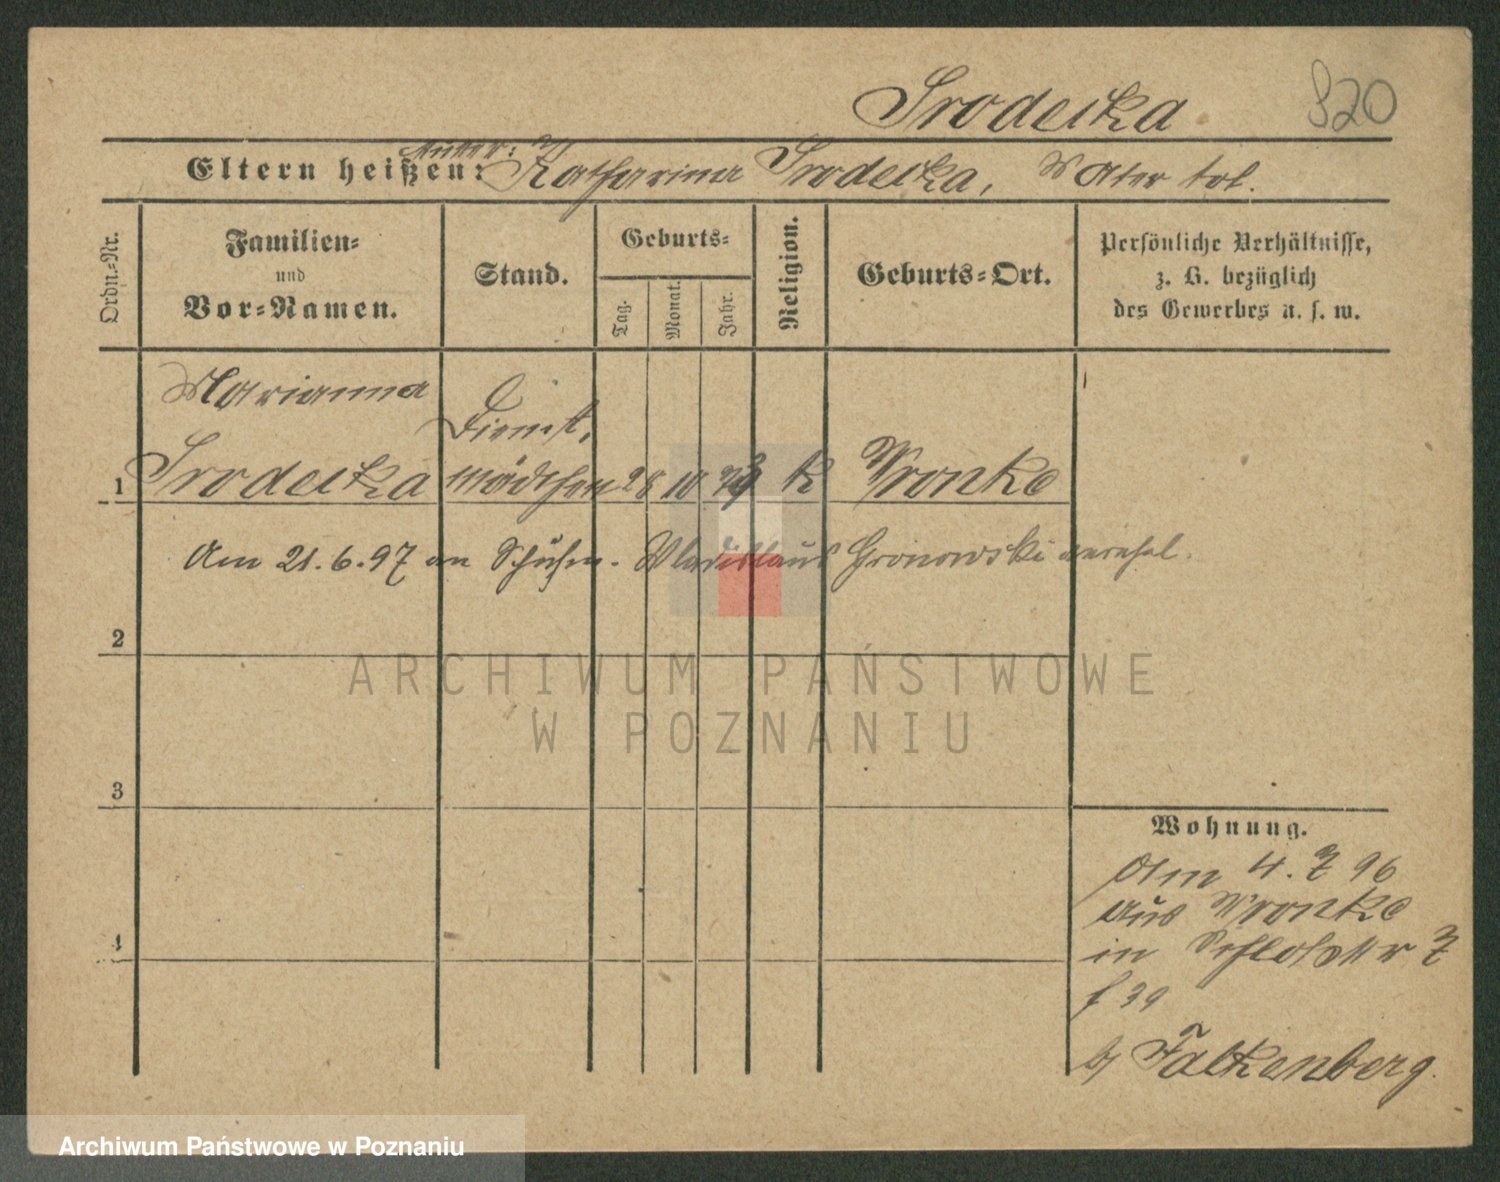 Srodecka 820
Mutter:
Eltern heißen: Katharina Srodecka, Vater tot.
Ordn.-Nr.
Familien-
und
Vor-Namen.
Stand.
Geburts-
Tag.
Monat.
Jahr.
Religion.
Geburts-Ort.
Persönliche Verhältnisse,
z. B. bezüglich
des Gewerbes u. s. w.
Marianna
Dienst,
1 Srodecka mädchen 28 10 k Wronke
Am 21.6.97 an Schuhm. Wladislaus Gronowski verehel.
2
ARCHIWUM PAŃSTWOWE
W POZNANIU
3
Wohnung.
Am 4. 7 96
aus Wronke
in Schloßstr 7
f 39
b/ Falkenberg.
4
Archiwum Państwowe w Poznaniu